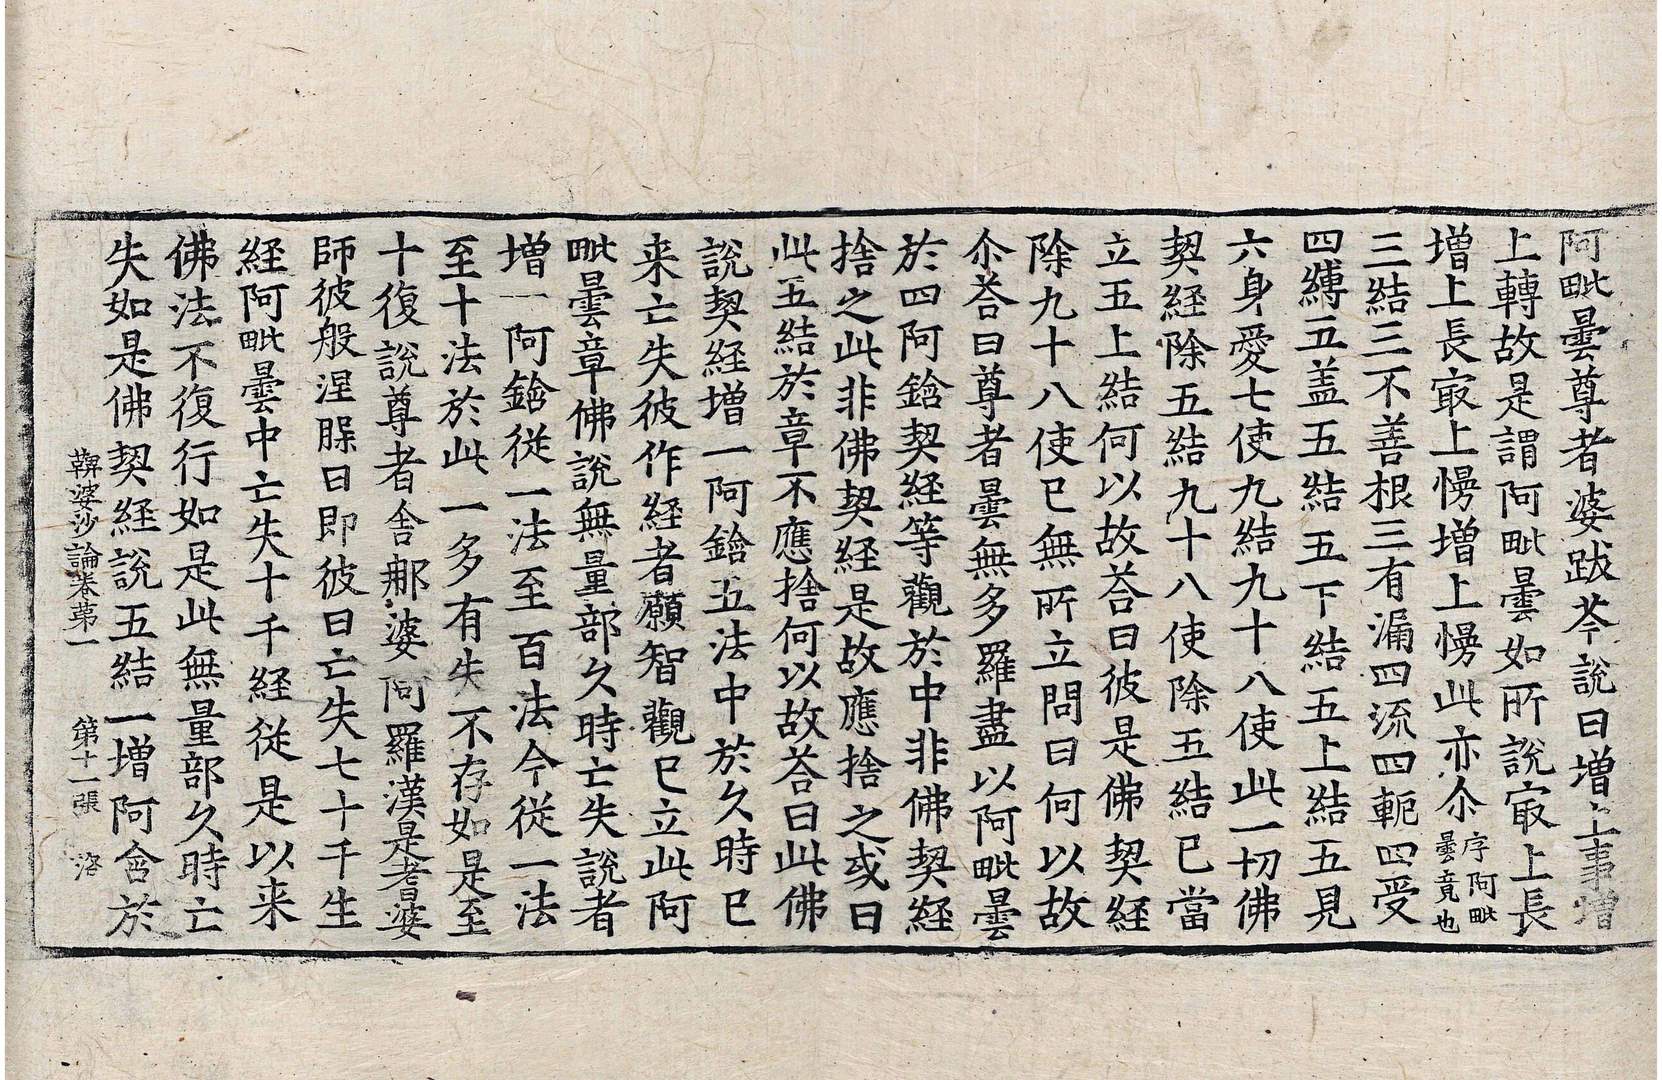 阿毗曇尊者婆跋茶說曰增上事增
上轉故是謂阿毗曇如所說㝡上長
增上長㝡上慢增上慢此亦尒序阿毗曇竟也
三結三不善根三有漏四流四軛四受
四縛五盖五結五下結五上結五見
六身愛七使九結九十八使此一切佛
契経除五結九十八使除五結已當
立五上結何以故荅曰彼是佛契経
除九十八使已無所立問曰何以故
尒荅曰尊者曇無多羅盡以阿毗曇
於四阿鋡契経等觀於中非佛契経
捨之此非佛契経是故應捨之或曰
此五結於章不應捨何以故荅曰此佛
說契経增一阿鋡五法中於久時已
来亡失彼作経者願智觀已立此阿
毗曇章佛說無量部久時亡失說者
增一阿鋡従一法至百法今従一法
至十法於此一多有失不存如是至
十復說尊者舎那婆阿羅漢是耆婆
師彼般涅槃日即彼日亡失七十千生
経阿毗曇中亡失十千経従是以来
佛法不復行如是此無量部久時亡
失如是佛契経說五結一增阿含於
鞞婆沙論卷第一 第十一張 洛